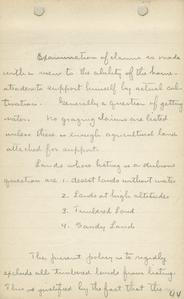 Examination of claims is made
with a view to the ability of the home-
steader to support himself by actual cul-
tivation. Generally a question of getting
water. No grazing claims are listed
unless there is enough agricultural land
attached for support.
Lands whose listing is a dubious
question are 1. desert lands without water
2. Lands at high altitudes
3. Timbered Land
4. Sandy Land
The present policy is to rigidly
exclude all timbered lands from listing.
This is qualified by the fact that the